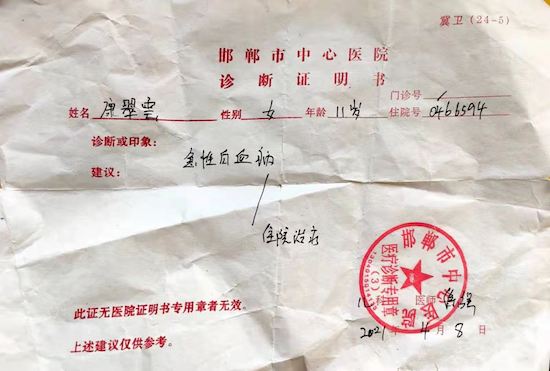 冀卫(24-5)
邯郸市中心医院
诊断证明书
门诊号
姓名 康翠云 性别 女 年龄 11岁 住院号 0466594
诊断或印象:
急性白血病
建议:
住院治疗
邯郸市中心医院
医疗诊断专用章
(3)
医师
此证无医院证明书专用章者无效。
2021年4月8日
上述建议仅供参考。